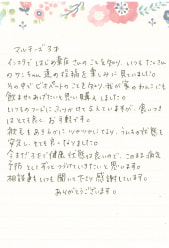 マルチーズ 3才
インスタではじめ貴店さんのことを知り、いつもたくさん
のワンちゃん達の投稿を楽しみに見ていました。
その中でサポートのことを知り、我が家のわんこにも
飲ませてあげたいと思い購入しました。
いつものフードにふりかけて与えていますが、食いつき
はとても良く、お手軽です。
飲ませてからツヤツヤになり、うんちの状態も
安定し、とても良くなりました。
今まだまだ健康状態は良いので、このまま病気
予防としてずっとつづけていきたいと思います。
相談事もいつも聞いて下さり感謝しています。
ありがとうございます。